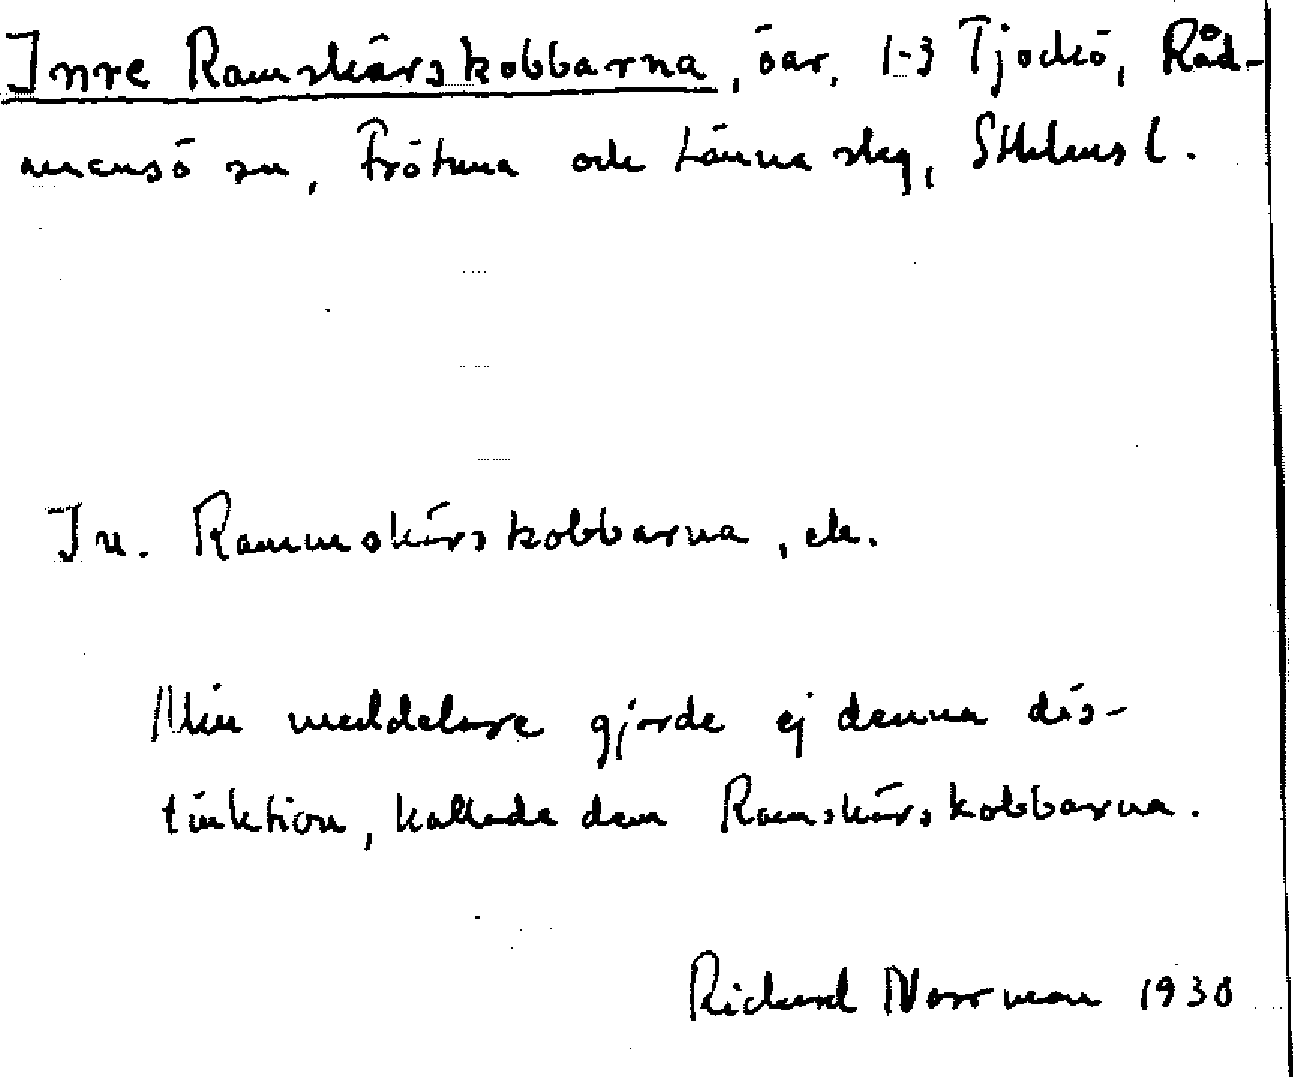 Inre Ramskärskobbarna, öar, 1-3 Tjockö, Råd-
mansö sn, Frötuna och Länna skg, Sthlms l.
In. Rammskärskobbarna, ek.
Min meddelare gjorde ej denna dis-
tinktion, kallade dem Ramskärskobbarna.
Richard Norrman 1930